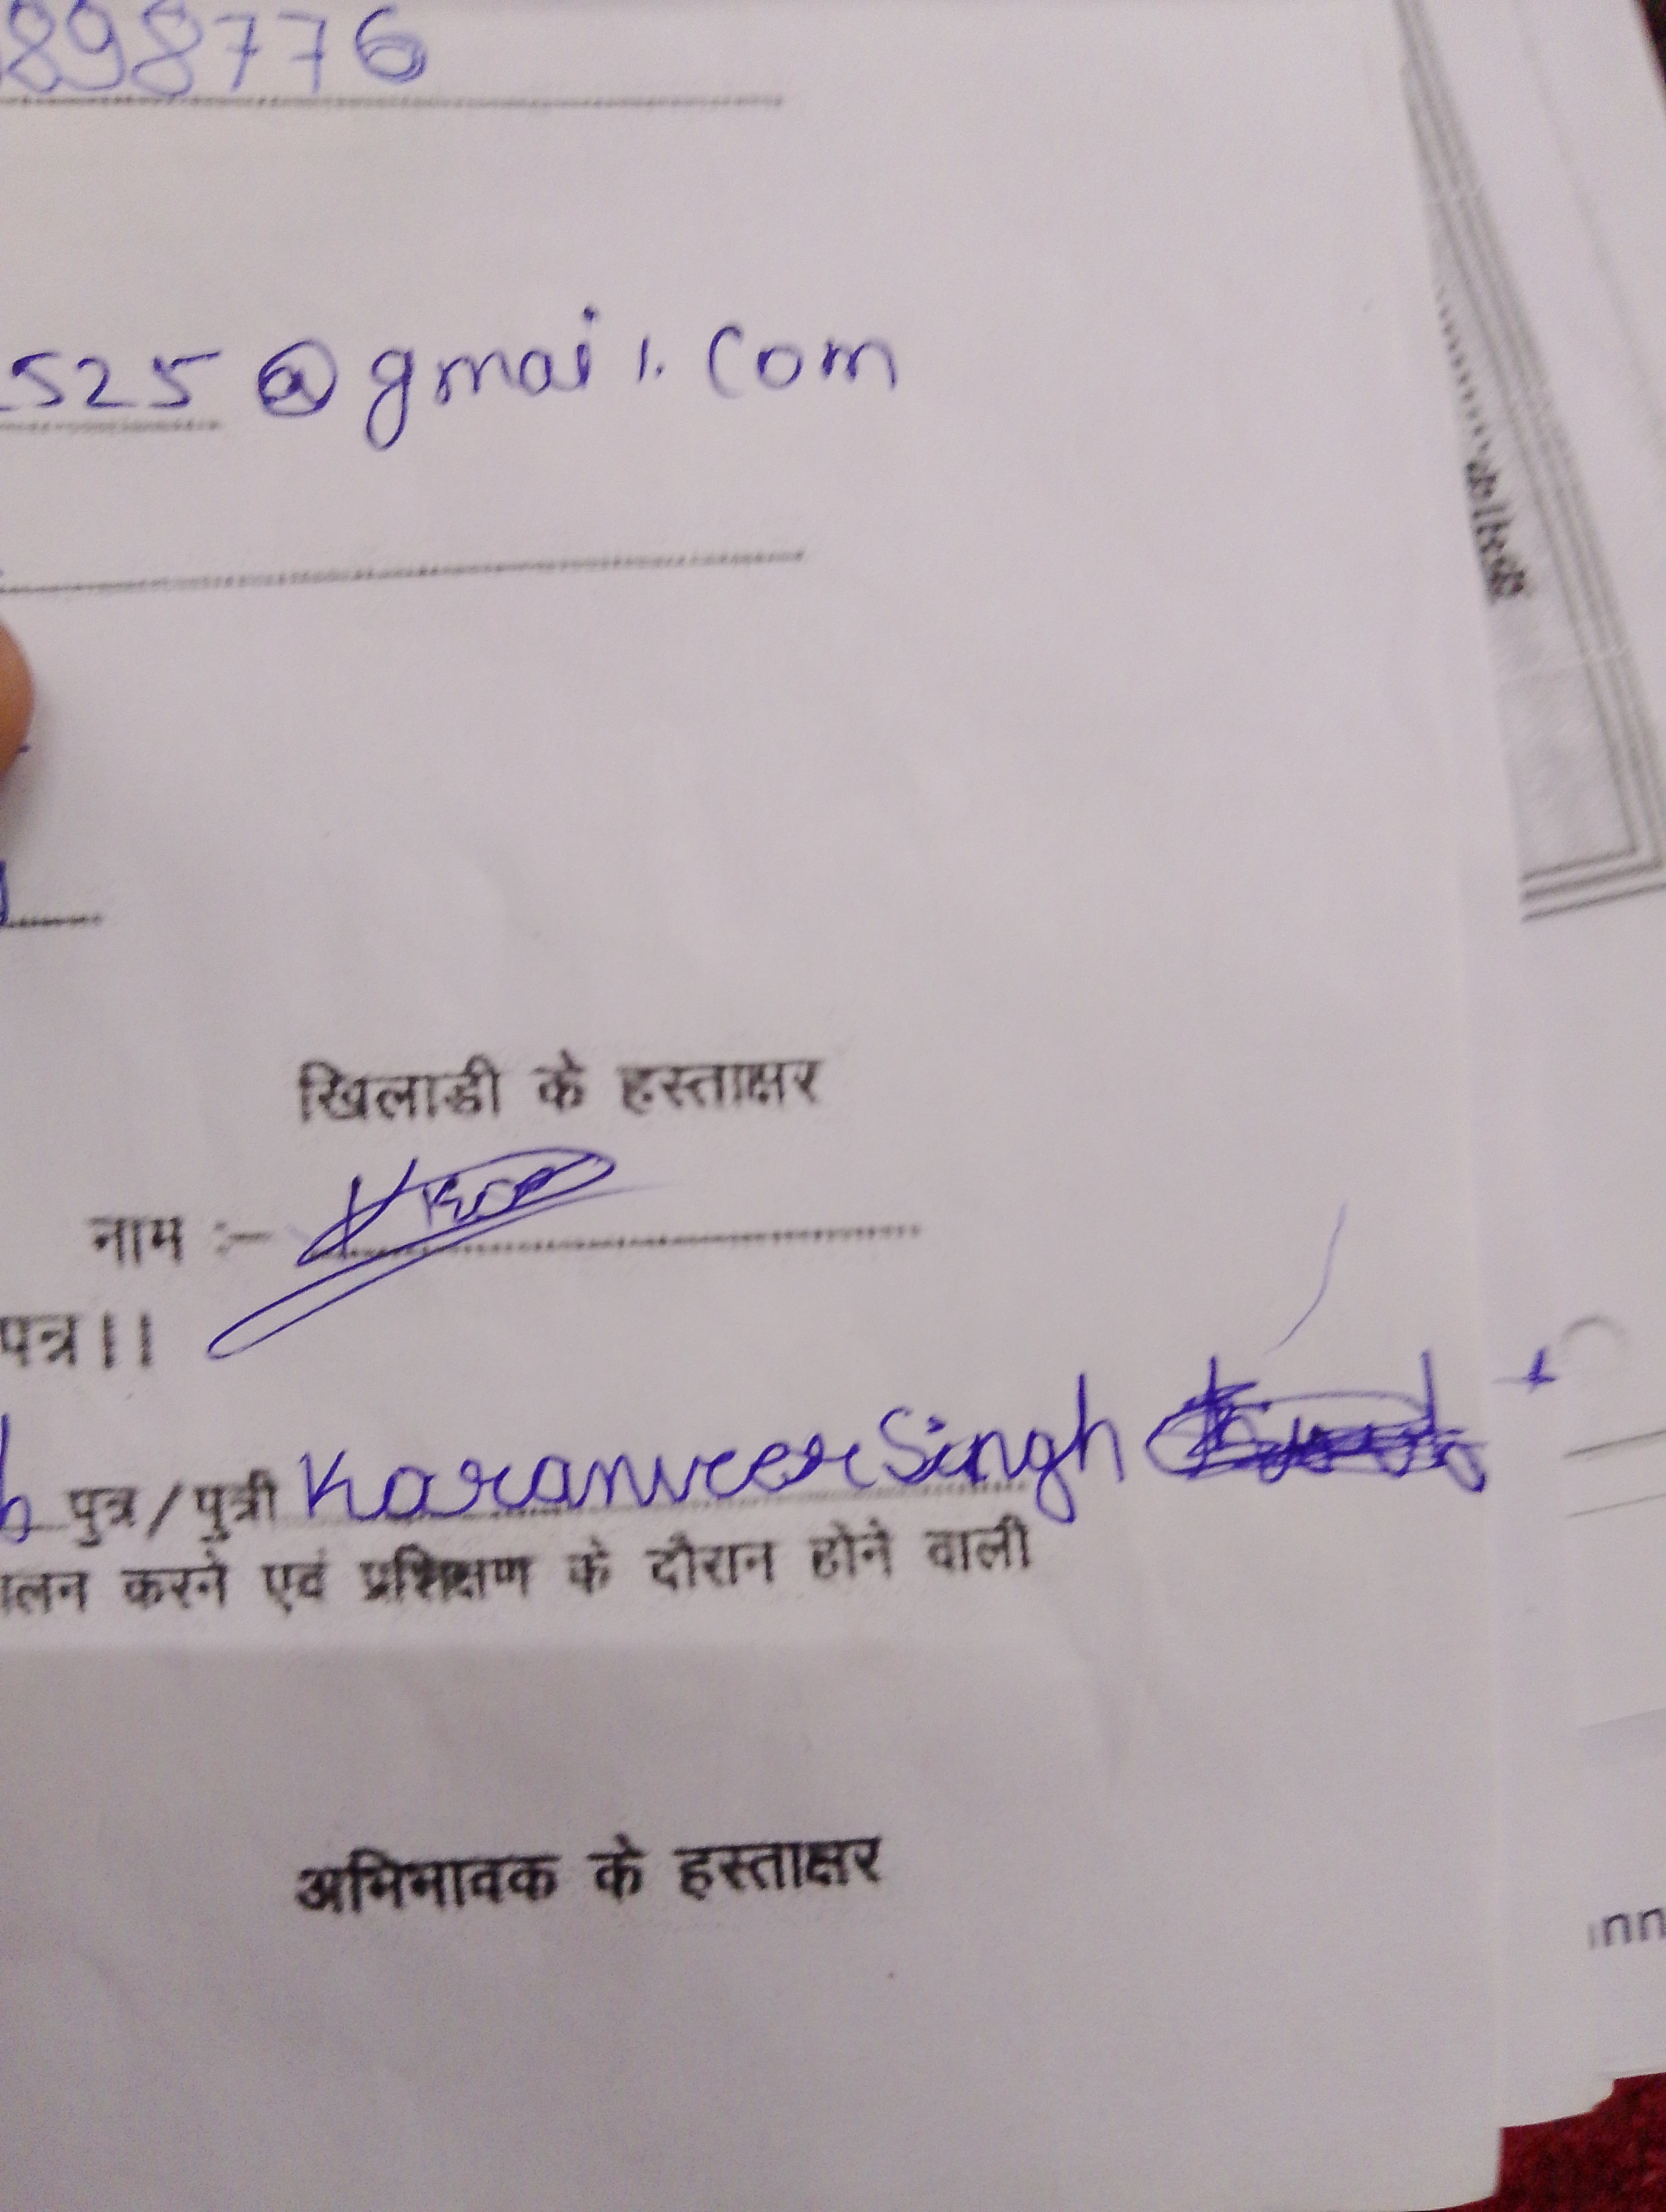 898776
525@gmail.com
खिलाडी के हस्ताक्षर
नाम :-
पत्र।।
पुत्र/पुत्री Karanveer Singh
ालन करने एवं प्रशिक्षण के दौरान होने वाली
अभिभावक के हस्ताक्षर